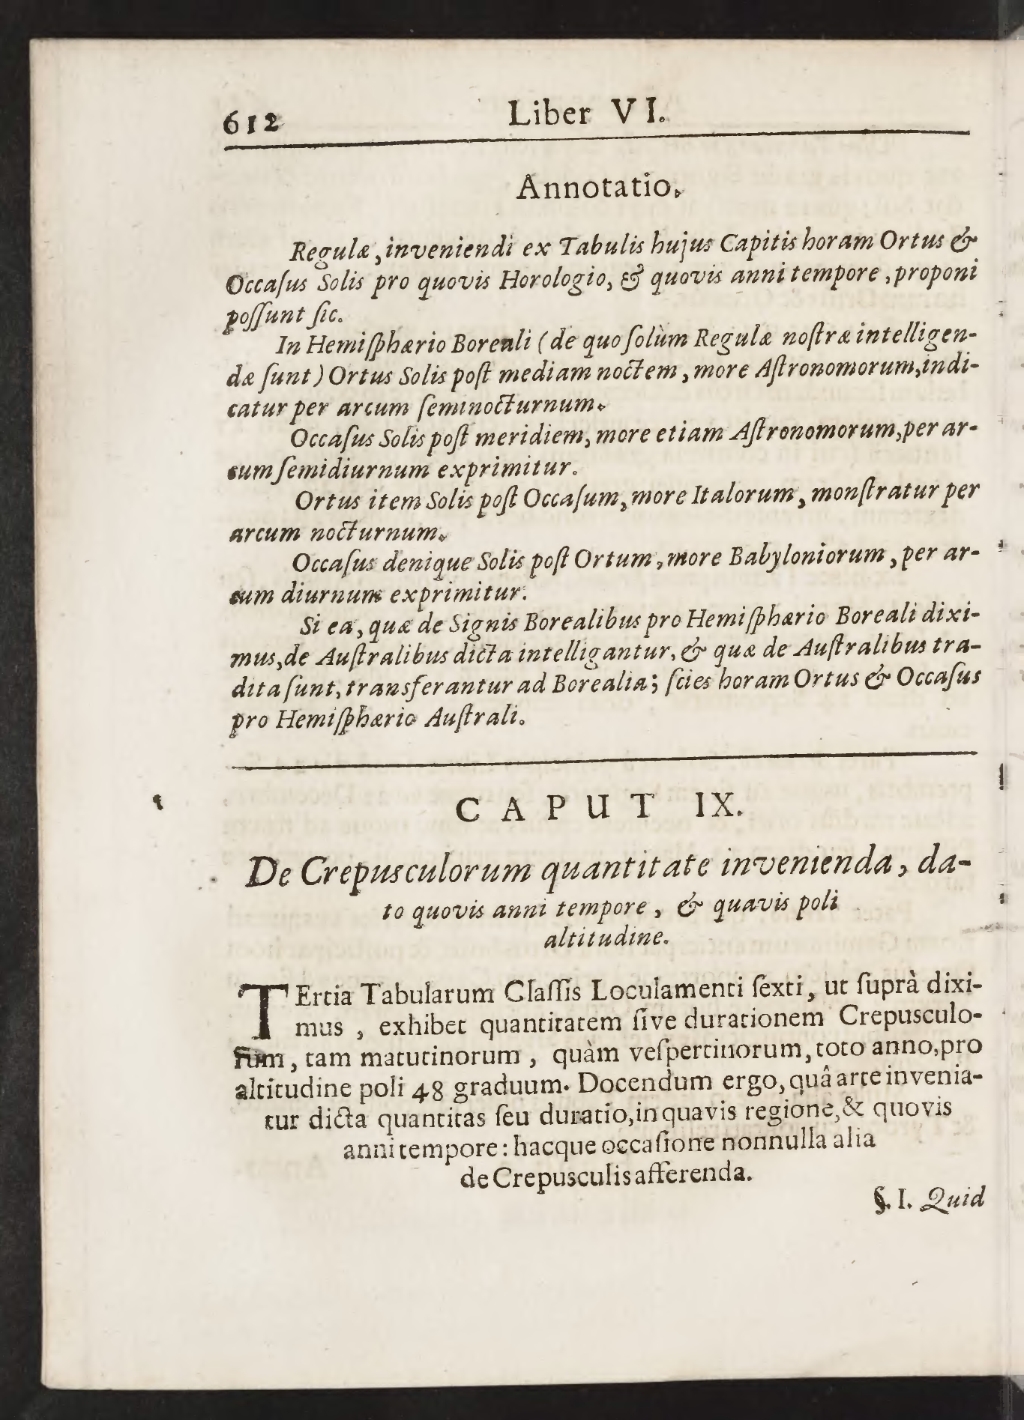 612 Liber VI.
Annotatio.
Regulæ, inveniendi ex Tabulis hujus Capitis horam Ortus &
Occaſus Solis pro quovis Horologio, & quovis anni tempore, proponi
poſſunt ſic.
In Hemiſphærio Boreali (de quo ſolùm Regulæ noſtræ intelligen-
dæ ſunt) Ortus Solis poſt mediam noctem, more Aſtronomorum, indi-
catur per arcum ſeminocturnum.
Occaſus Solis poſt meridiem, more etiam Aſtronomorum, per ar-
cum ſemidiurnum exprimitur.
Ortus item Solis poſt Occaſum, more Italorum, monſtratur per
arcum nocturnum.
Occaſus denique Solis poſt Ortum, more Babyloniorum, per ar-
cum diurnum exprimitur.
Si ea, quæ de Signis Borealibus pro Hemiſphærio Boreali dixi-
mus, de Auſtralibus dicta intelligantur, & quæ de Auſtralibus tra-
dita ſunt, transferantur ad Borealia; ſcies horam Ortus & Occaſus
pro Hemiſphærio Auſtrali.
CAPUT IX.
De Crepusculorum quantitate invenienda, da-
to quovis anni tempore, & quavis poli
altitudine.
TErtia Tabularum Claſſis Loculamenti ſexti, ut ſuprà dixi-
mus, exhibet quantitatem ſive durationem Crepusculo-
rum, tam matutinorum, quàm veſpertinorum, toto anno, pro
altitudine poli 48 graduum. Docendum ergo, quâ arte invenia-
tur dicta quantitas ſeu duratio, in quavis regione, & quovis
anni tempore: hacque occaſione nonnulla alia
de Crepusculis afferenda.
§. I. Quid